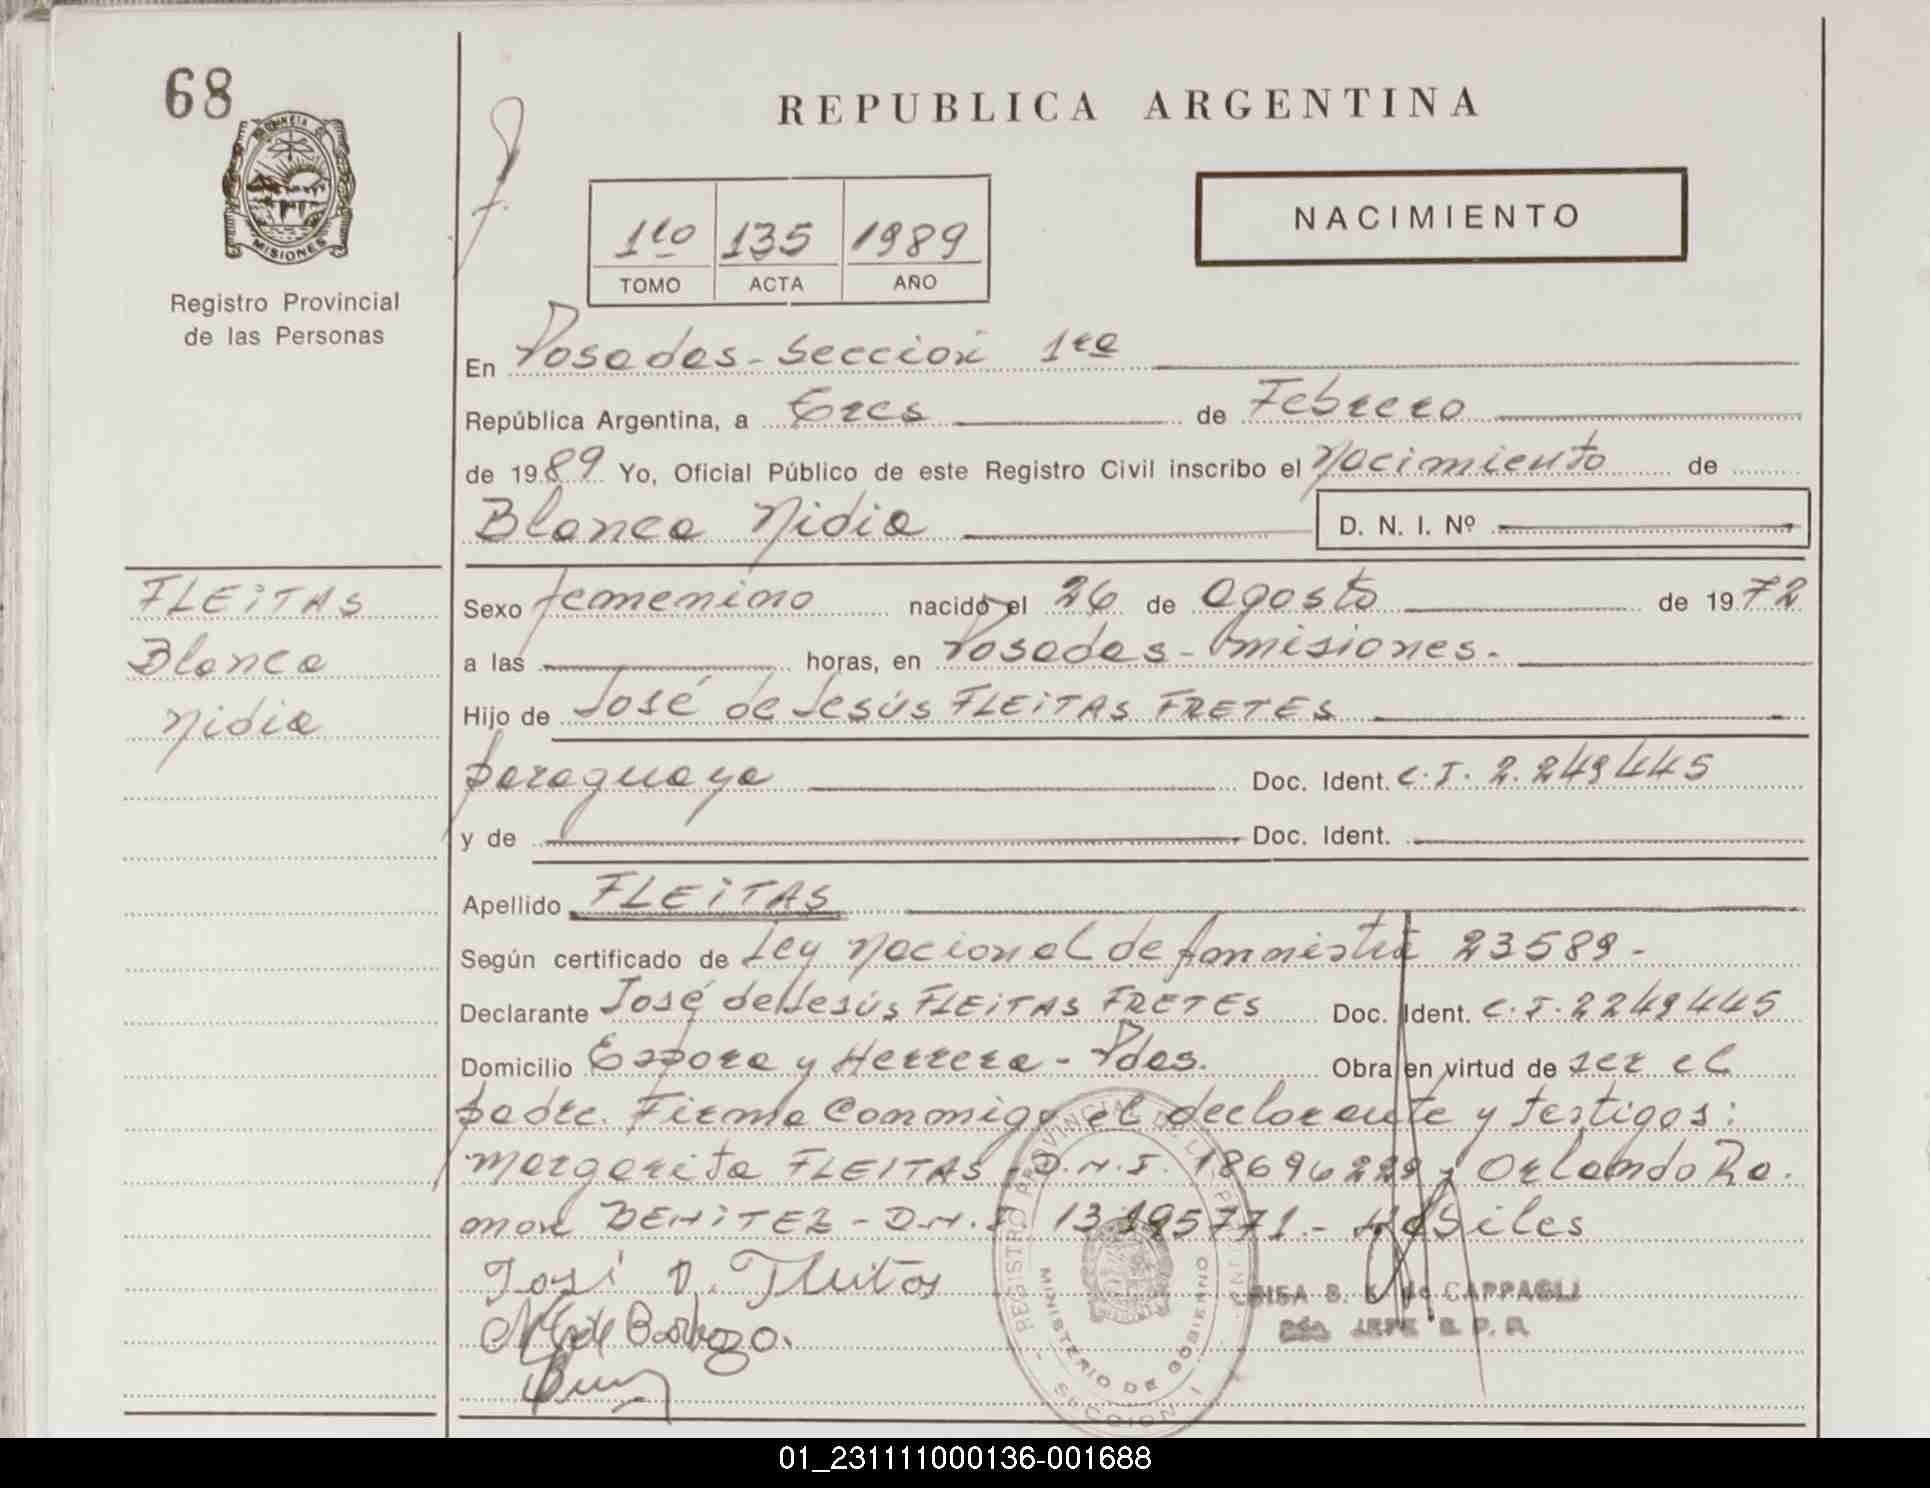 68
PROVINCIA DE
MISIONES
Registro Provincial
de las Personas
REPUBLICA ARGENTINA
1ro 135 1989
TOMO ACTA AÑO
NACIMIENTO
En Posadas - Sección 1ra
República Argentina, a tres de Febrero
de 1989 Yo, Oficial Público de este Registro Civil inscribo el Nacimiento de
Blanca Nidia D. N. I. Nº
FLEiTAS
Blanca
Nidia
Sexo femenino nacido el 26 de agosto de 1972
a las horas, en Posadas - Misiones.
Hijo de José de Jesús FLEiTAS FRETES
paraguaya Doc. Ident. C.I. 2.249445
y de Doc. Ident.
Apellido FLEiTAS
Según certificado de Ley Nacional de Amnistía 23589 -
Declarante José de Jesús FLEiTAS FRETES Doc. Ident. C.I. 2249445
Domicilio Espora y Herrera - Pdas. Obra en virtud de ser el
padre. Firma Conmigo el declarante y testigos:
Margarita FLEITAS - D.N.I. 18696229 y Orlando Ra.
mon BENiTEZ - D.N.I. 13195771.- Hábiles
José D. Fleitas
Barbozo.
REGISTRO PROVINCIAL DE LAS PERSONAS
MINISTERIO DE GOBIERNO
SECCION 1
de CAPPAGLI
JEFE R. P. P.
01_231111000136-001688